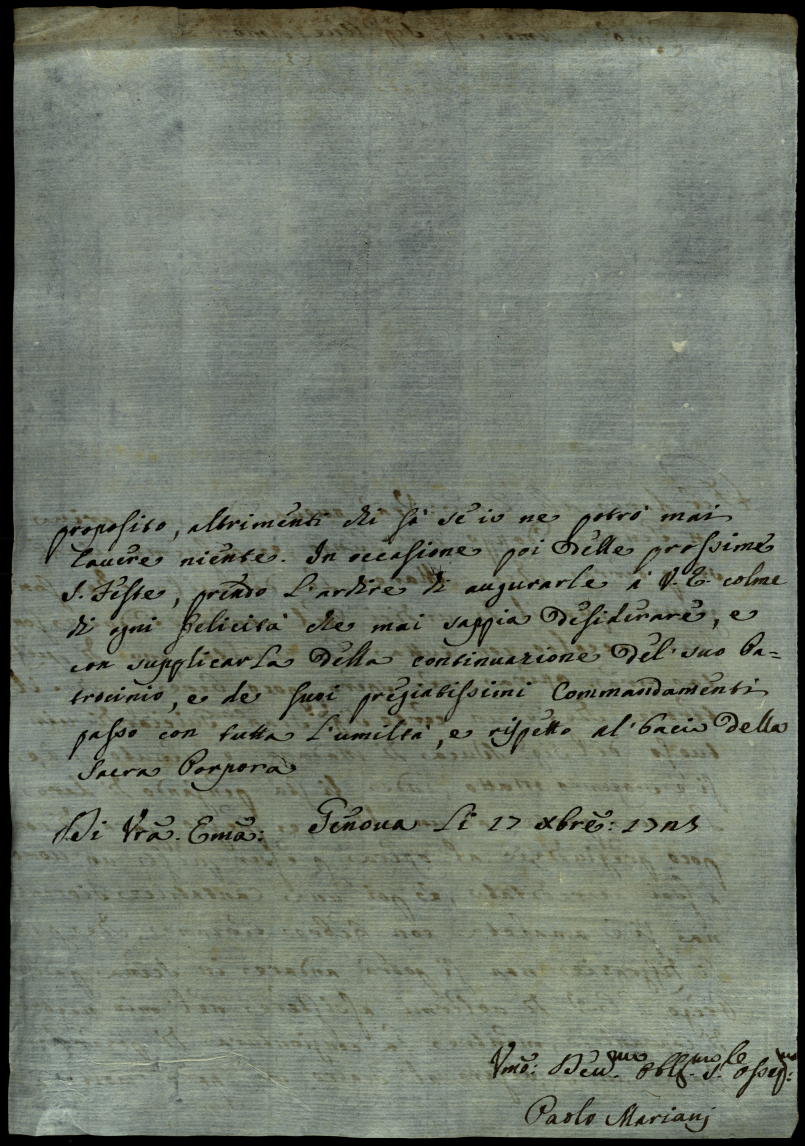 proposito, altrimenti chi sà se io ne potrò mai
havere niente. In occasione poi delle prossime
S. Feste, prendo l'ardire di augurarle à V. E. colme
di ogni felicità che mai sappia desiderare, e
con supplicarla della continuazione del' suo Pa-
trocinio, e de suoi pregiatissimi Commandamenti
passo con tutta l'umiltà, e rispetto al' bacio della
Sacra Porpora
Di Vrã. Emã: Genova li 17 xbrẽ:
Vmõ: Deu.mo Obll.mo S.le Osseq.mo
Paolo Marianj